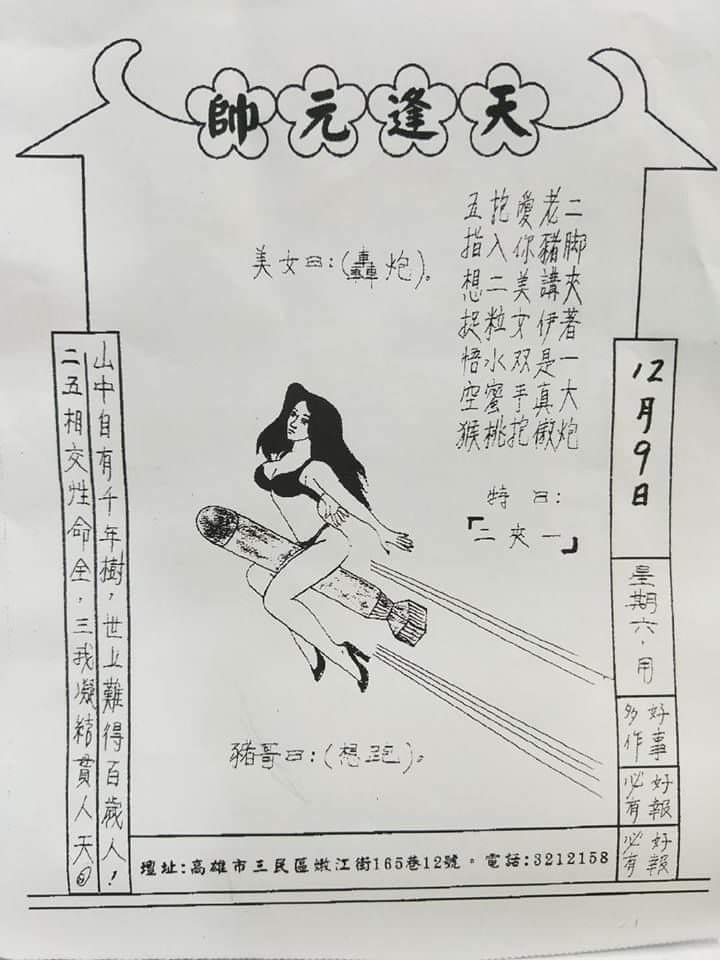 天逢元帥
二脚夾著一大炮
老豬講伊是真傲
愛你美女双手抱
抱入二粒水蜜桃
五指想捉悟空猴
特曰:
「二夾一」
美女曰:(轟炮)。
豬哥曰:(想跑)。
12月9日
星期六,用
好事多作
好報必有
好報必有
山中自有千年樹,世上難得百歲人!
二五相交性命全,三我凝結貫人天
壇址:高雄市三民區嫩江街165巷12號。電話:3212158